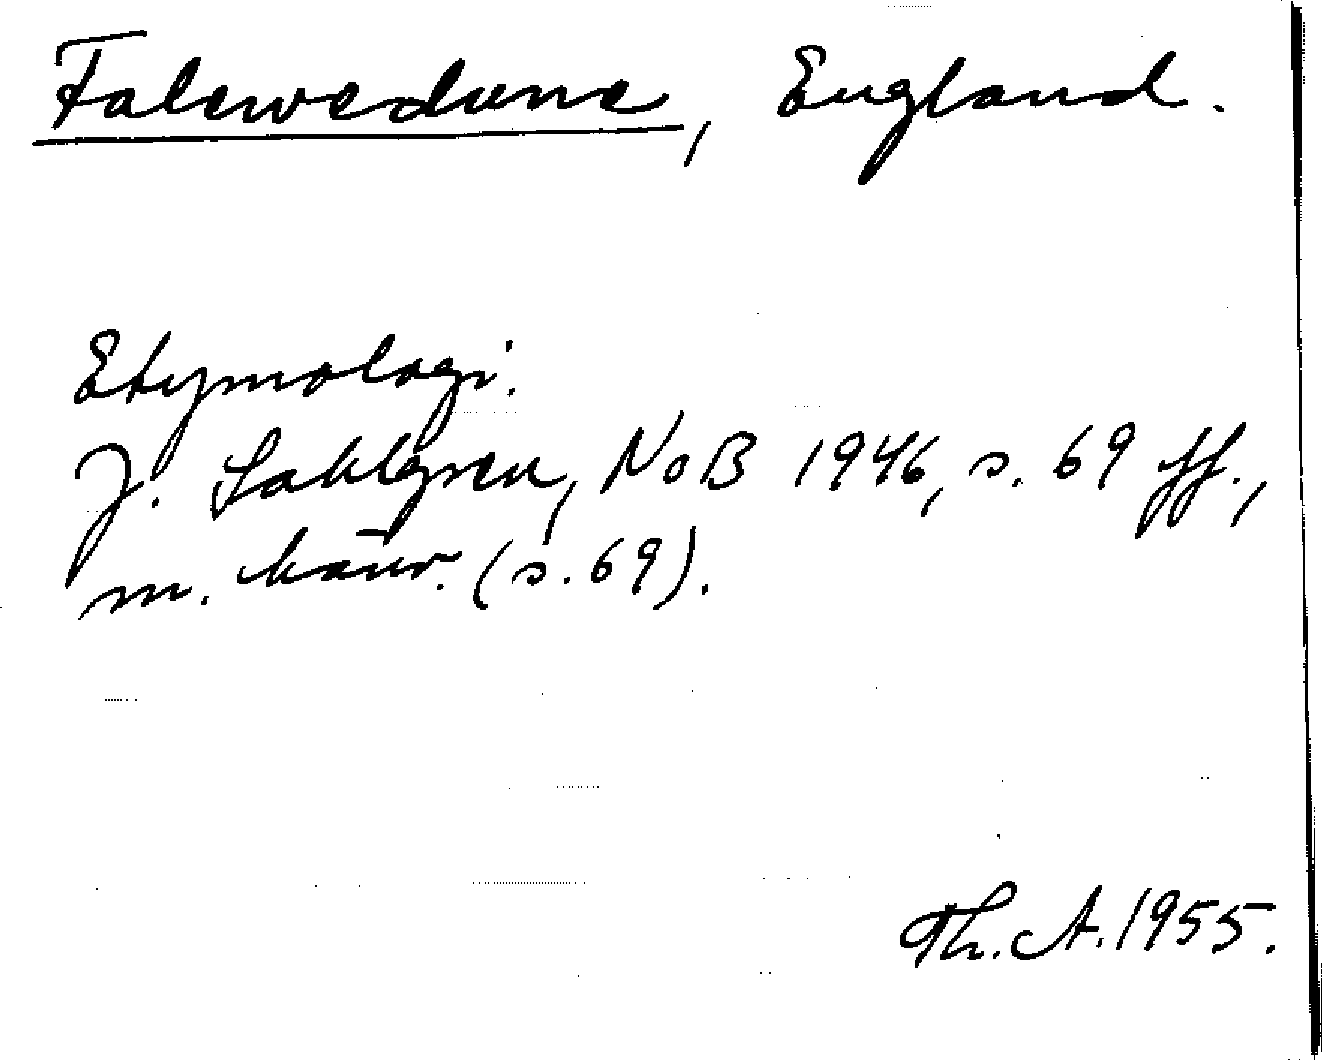 Falewedune, England.
Etymologi.
J. Sahlgren, NoB 1946, s. 69 ff.,
m. hänv. (s. 69).
Th. A. 1955.